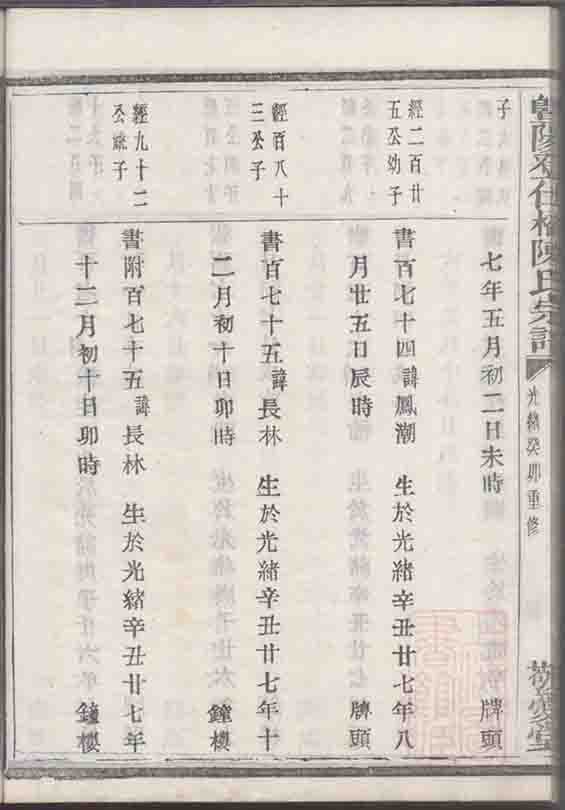 陳氏宗譜
光緒癸卯重修
子
七年五月初二日未時 牌頭
經二百廿
五公幼子
書百七十四諱鳳潮 生於光緒辛丑廿七年八
月廿五日辰時 牌頭
經百八十
三公子
書百七十五諱長林 生於光緒辛丑廿七年十
二月初十日卯時 鐘樓
經九十二
公繼子
書附百七十五諱長林 生於光緒辛丑廿七年
十二月初十日卯時 鐘樓